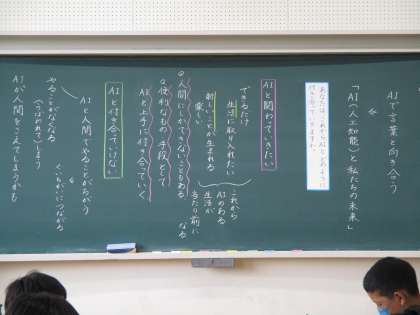 AIで言葉と向き合う
「AI(人工知能)と私たちの未来」
あなたは、これからAIとどのように
付き合っていきますか。
AIと関わっていきたい
できるだけ
生活に取り入れたい
新しいものが生まれる
楽しい
これから
AIのある
生活が
当たり前に
なる
人間にしかできないこともある
便利なもの 手段として
AIと上手に付き合っていく
AIと付き合っていけない
AIと人間でやることがちがう
くいちがいにつながる
やることがなくなる
(うばわれて)しまう
AIが人間をこえてしまうかも